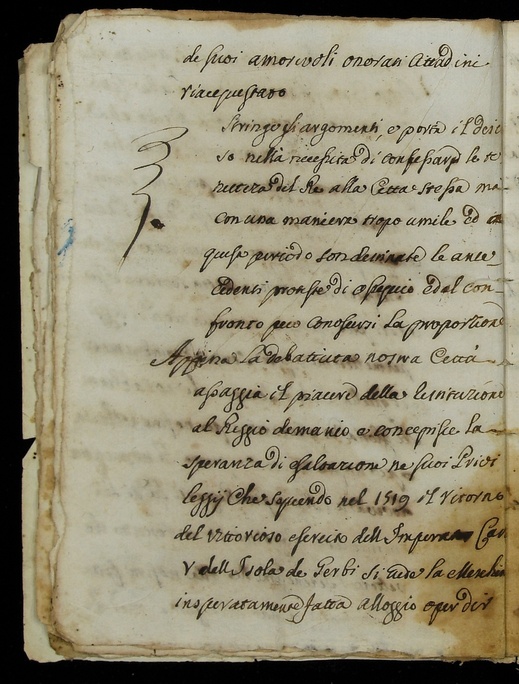 de suoi amorevoli onorati Cittadini
riacquistato
Stringe gli argomenti, e porta il
so nella necessità di confessare le te
nerezza del Re alla Città stessa ma
con una maniera tropo umile ed
queste periodo son le ante
cedenti proteste di ossequio ed al con
fronto puo conoscersi la proportione
Appena la debattuta nostra Città
asaggia il piacere della restituzione
al Reggio demanio e concepisce la
speranza di esaltazione ne suoi Privi
leggij che seguendo nel 1519 il ritorno
del vittorioso esercito dell Imperator Car
V dell Isola de Gerbi si vede la Meschin
inosperatamente fatta alloggio o per dir